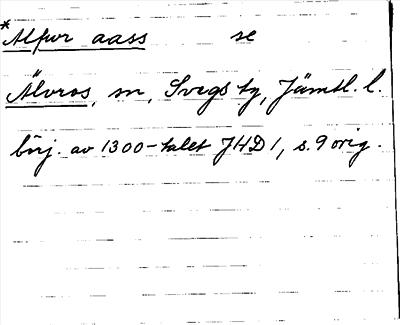 *Alfwr aass se
Älvros, sn, Svegs tg, Jämtl. l.
börj. av 1300-talet JHD 1, s. 9 orig.